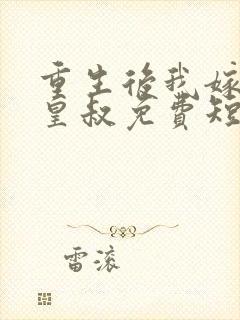 重生后我嫁
皇叔免費短
雷滚